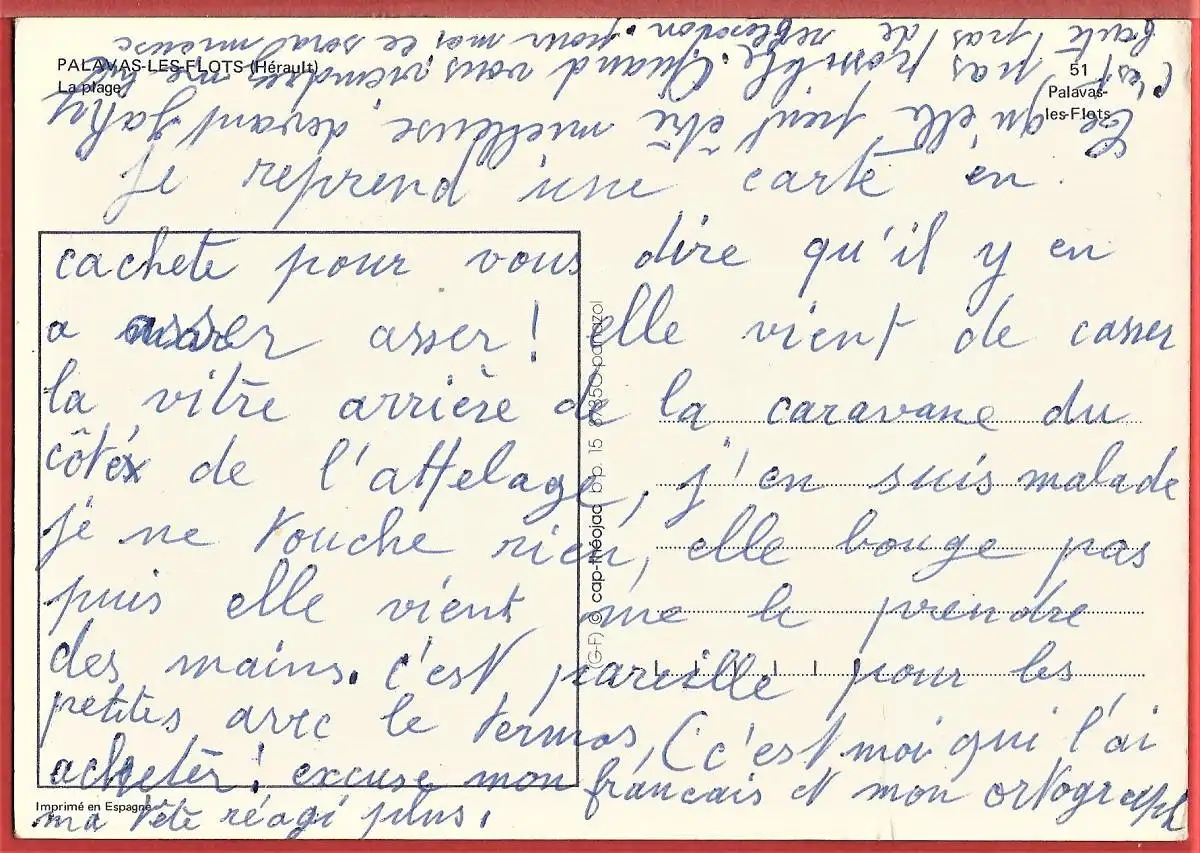 PALAVAS-LES-FLOTS (Hérault)
La plage
51
Palavas-
les-Flots
Je reprend une carte en
cachete pour vous dire qu'il y en
a asser asser ! elle vient de casser
la vitre arrière de la caravane du
côtéx de l'attelage, j'en suis malade
je ne touche rien, elle bouge pas
puis elle vient me le prendre
des mains. c'est pareille pour les
petites avec le termos, (c'est moi qui l'ai
acheter ! excuse mon francais et mon ortograph
ma tête réagi plus.
Ce qu'elle peut être mielleuse devant Jahy
c'est pas possible. Quand vous viendrez me
faute pas de reflestion. pour moi ce sera mieuse
(G-F) © cap-théojac b.p. 15 87350 panazol
Imprimé en Espagne